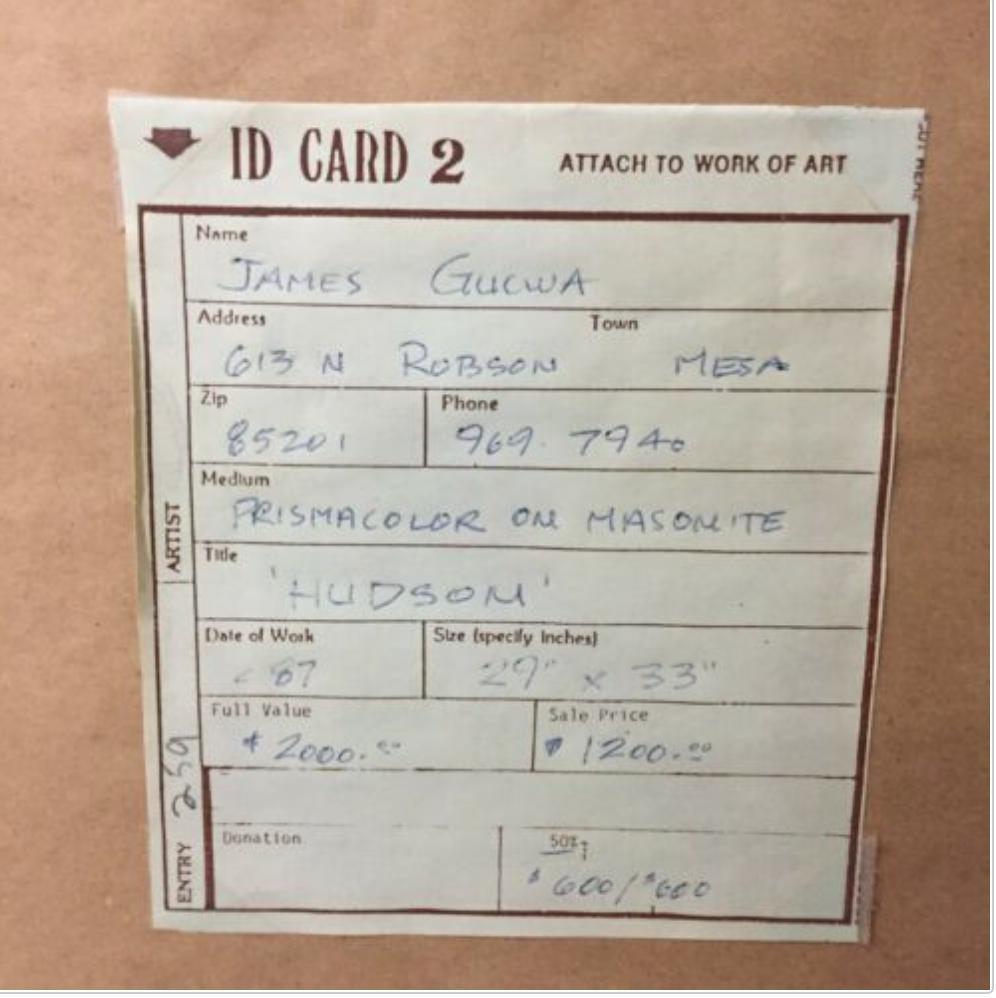 ID CARD 2 ATTACH TO WORK OF ART
Name
JAMES GUCWA
Address Town
613 N ROBSON MESA
Zip Phone
85201 969.7940
Medium
PRISMACOLOR ON MASONITE
Title
'HUDSON'
Date of Work Size (specify inches)
87 29" x 33"
Full Value Sale Price
$2000.00 $1200.00
Donation 50%
$600/$600
ARTIST
ENTRY 259